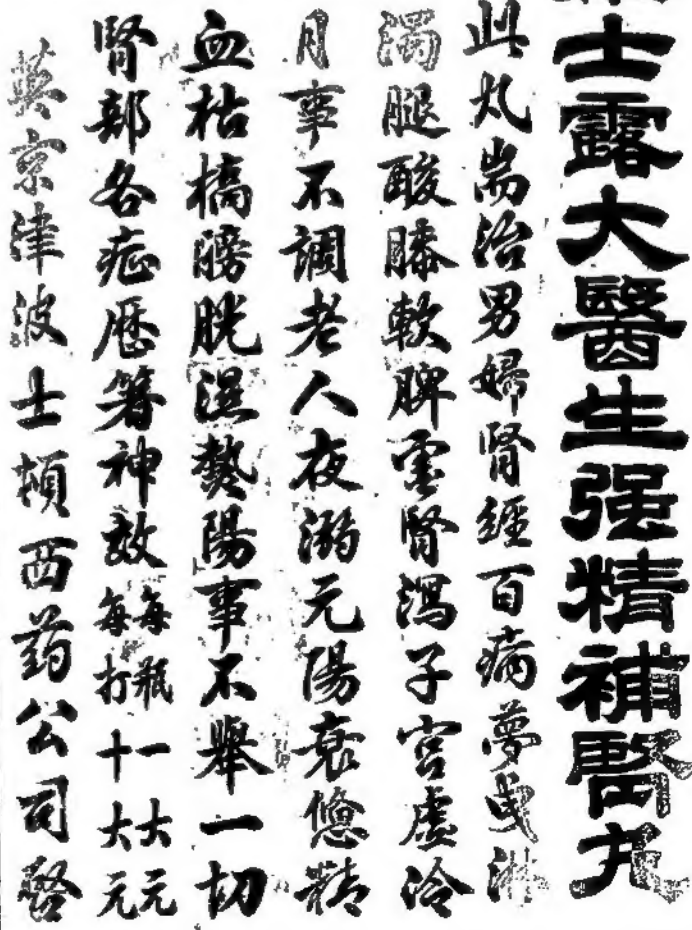 士露大醫生强精補腎丸
此丸耑治男婦腎經百病夢曳淋
濁腿酸膝軟脾虛腎瀉子宮虛冷
月事不調老人夜溺元陽衰憊精
血枯槁膀胱濕熱陽事不舉一切
腎部各症歷著神效每瓶一大元
每打十大元
英京津波士頓西药公司啓